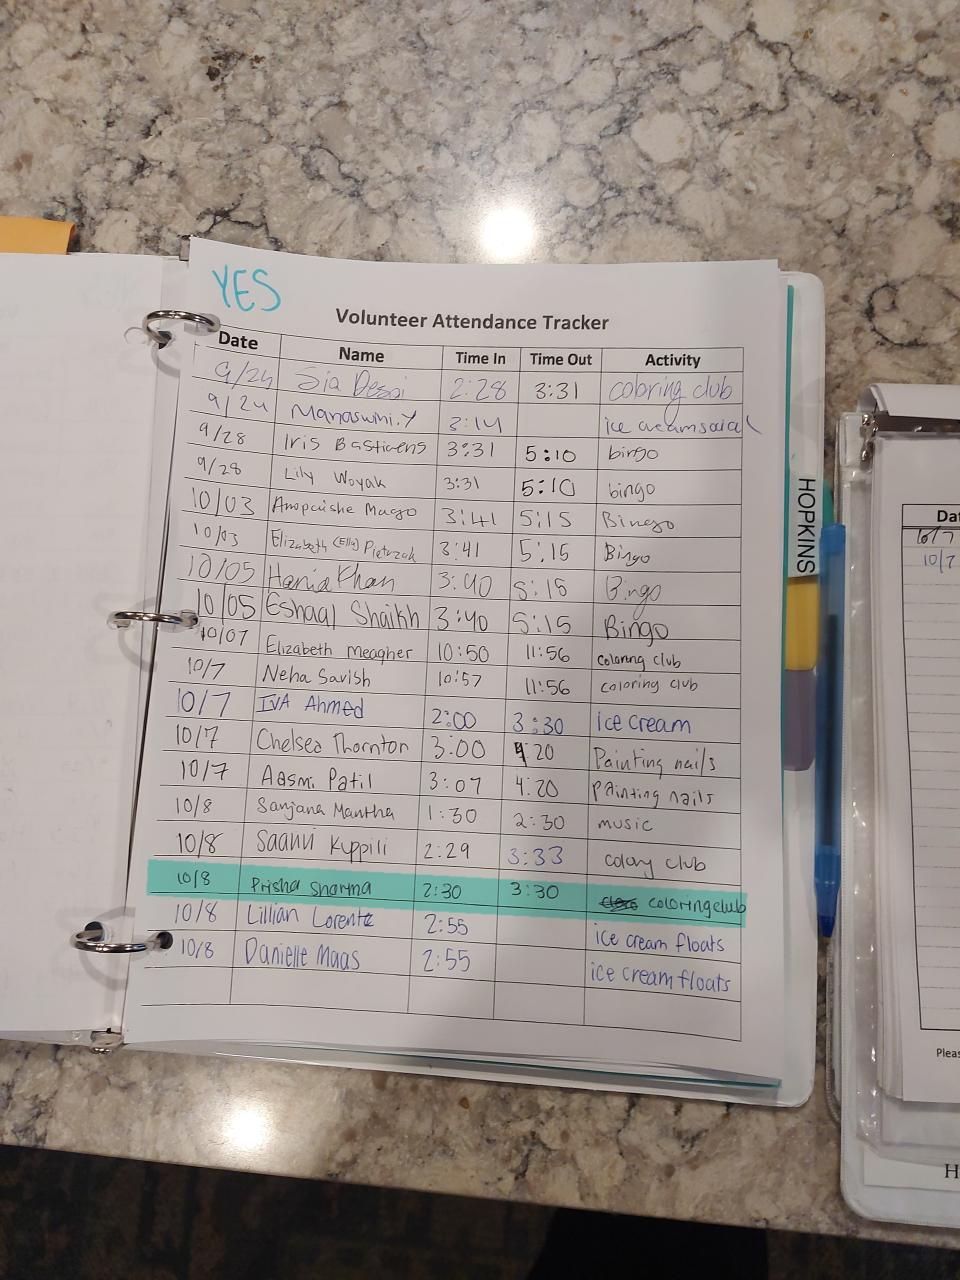 YES
Volunteer Attendance Tracker
Date Name Time In Time Out Activity
9/24 Sia Desai 2:28 3:31 coloring club
9/24 Manaswini.Y 3:14 ice cream social
9/28 Iris Bastiaens 3:31 5:10 bingo
9/28 Lily Woyak 3:31 5:10 bingo
10/03 3:41 5:15 Bingo
10/03 Elizabeth (Ella) Pietrzak 3:41 5:15 Bingo
10/05 Hania Khan 3:40 5:15 Bingo
10/05 Eshaal Shaikh 3:40 5:15 Bingo
10/07 Elizabeth Meagher 10:50 11:56 coloring club
10/7 Neha Savish 10:57 11:56 coloring club
10/7 IVA Ahmed 2:00 3:30 ice cream
10/7 Chelsea Thornton 3:00 4:20 Painting nails
10/7 Aasmi Patil 3:07 4:20 painting nails
10/8 Sanjana Mantha 1:30 2:30 music
10/8 Saanvi Kuppili 2:29 3:33 club
10/8 Prisha Sharma 2:30 3:30 coloring club
10/8 Lillian Lorentz 2:55 ice cream floats
10/8 Danielle Maas 2:55 ice cream floats
HOPKINS
Dat
10/7
10/7
Pleas
H